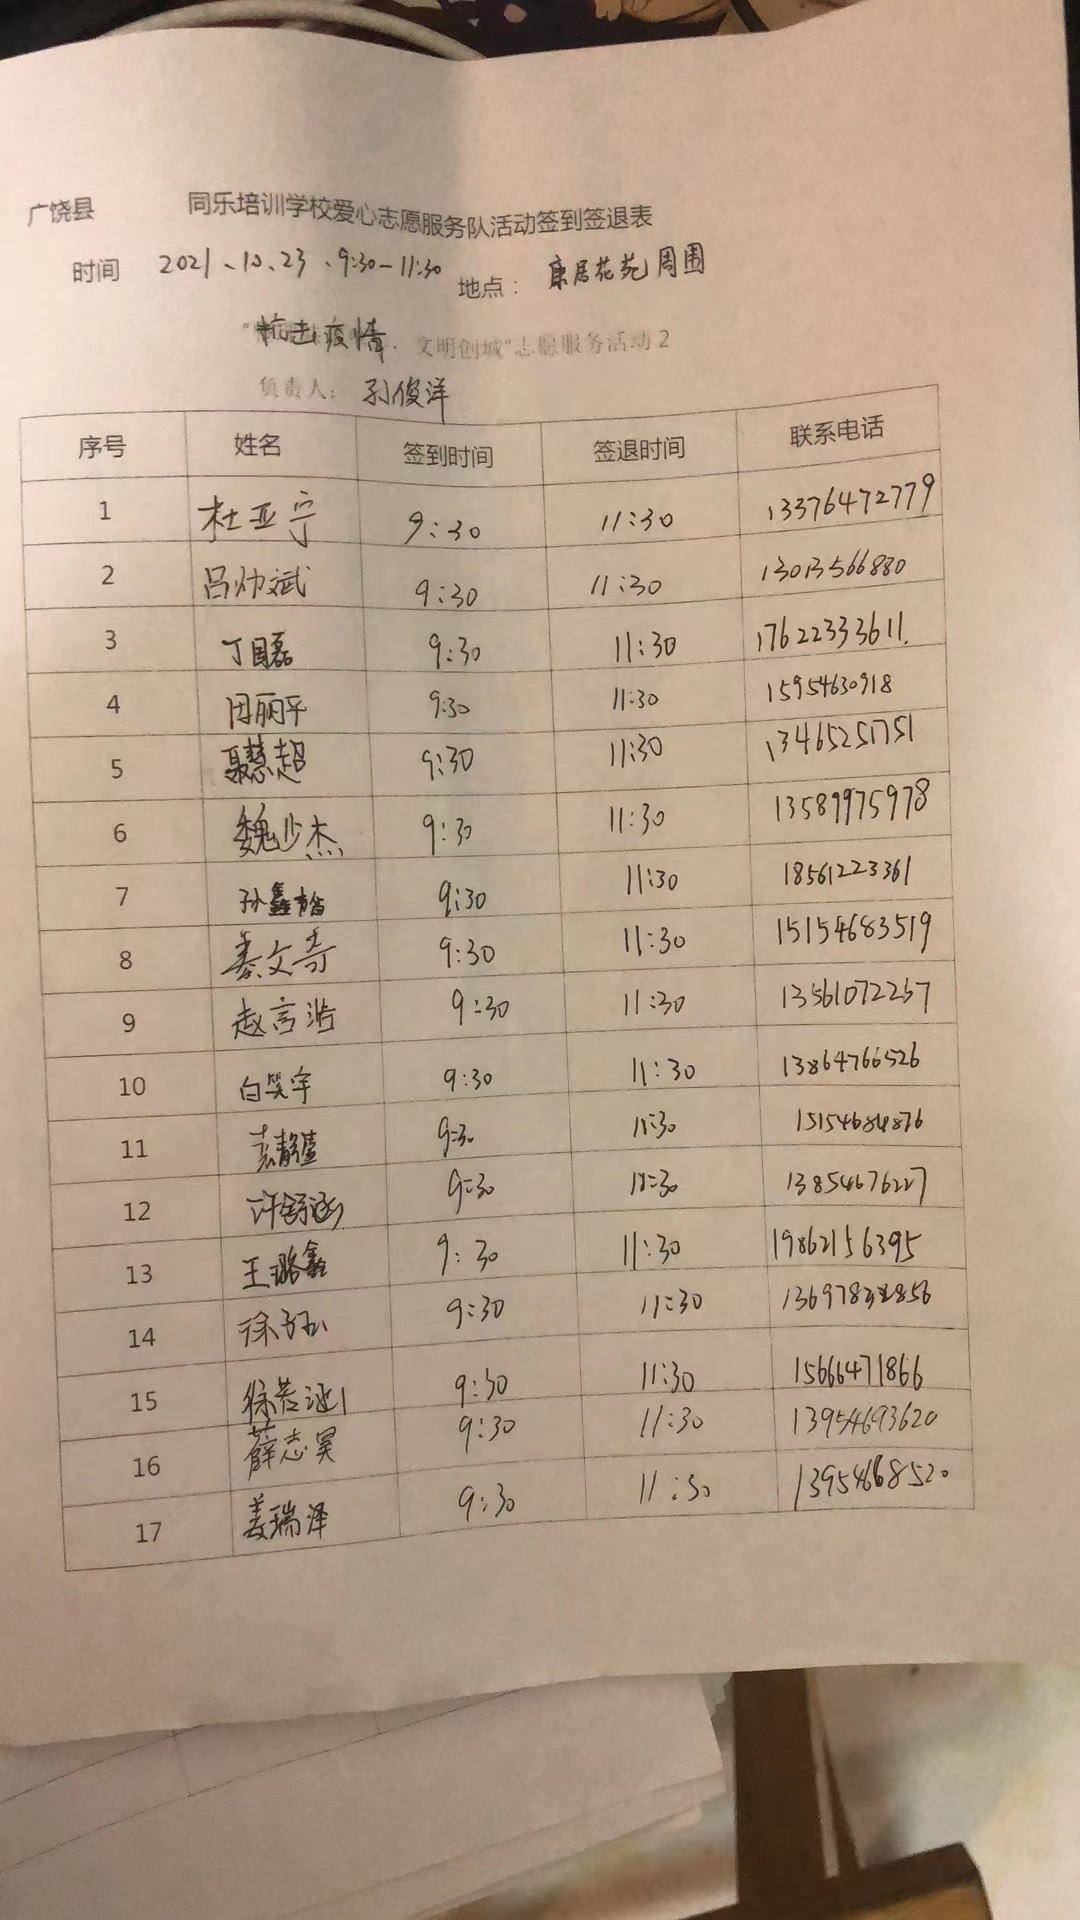 广饶县 同乐培训学校爱心志愿服务队活动签到签退表
时间 2021、10、23、9:30-11:30 地点: 康居花苑周围
抗击疫情. 文明创城"志愿服务活动2
负责人: 孙俊洋
序号 姓名 签到时间 签退时间 联系电话
1 杜亚宁 9:30 11:30 13376472779
2 吕帅斌 9:30 11:30 13013566880
3 丁国磊 9:30 11:30 17622333611.
4 田丽平 9:30 11:30 15954630918
5 聂慧超 9:30 11:30 13465251751
6 魏少杰 9:30 11:30 13589975978
7 孙鑫 9:30 11:30 18561223361
8 秦文奇 9:30 11:30 15154683519
9 赵言浩 9:30 11:30 13561072257
10 白笑宇 9:30 11:30 13864766526
11 9:30 11:30 15154684876
12 许舒涵 9:30 11:30 13854676227
13 王璐鑫 9:30 11:30 19862156395
14 9:30 11:30
15 徐若涵 9:30 11:30 15666471866
16 薛志昊 9:30 11:30 13954693620
17 姜瑞泽 9:30 11:30 13954668520